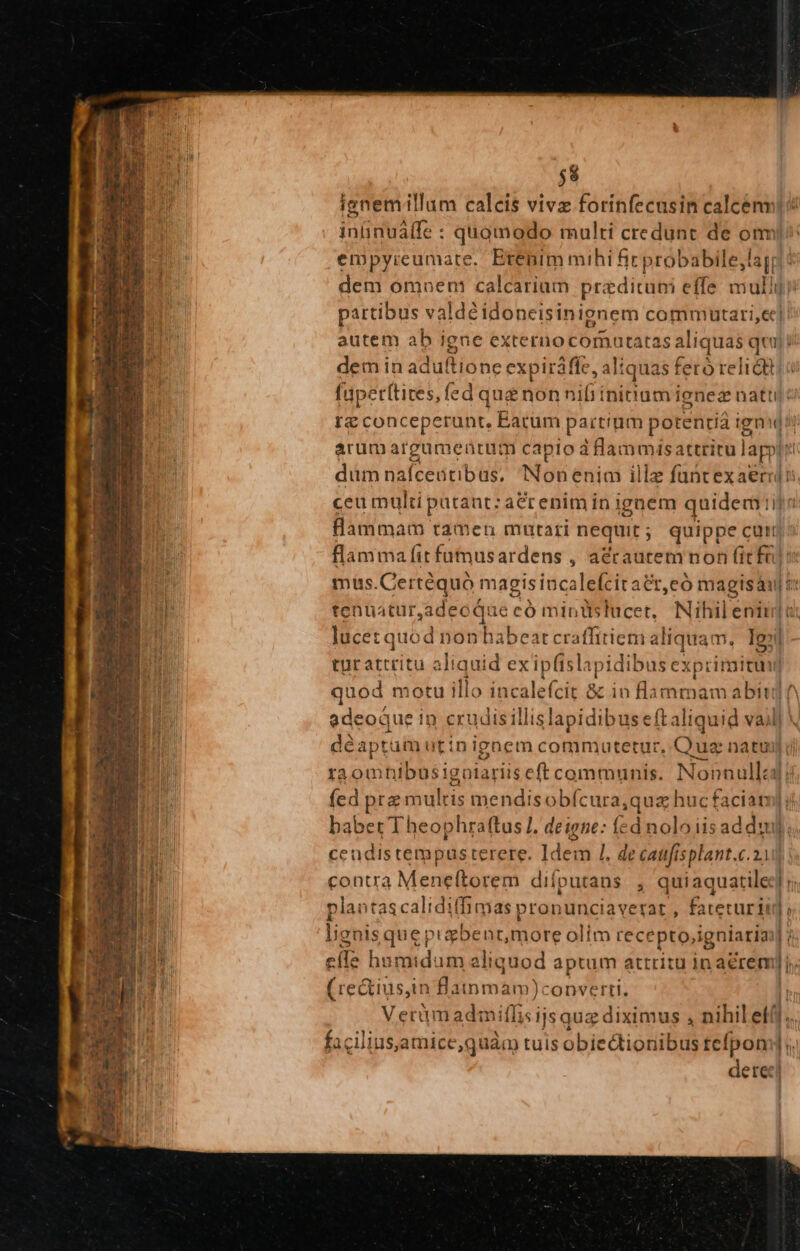 58
ignem illum calcis vivæ forinſecus in calcem
inſinuáſſe : quomodo multi credunt de omni
empyreumate. Etenim mihi fit probabile, lapi
dem omnem calcarium præditum eſſe multis
partibus valdè idoneis in ignem commutari,
autem ab igne externo comutatas aliquas
dem in aduſtione expiráſſe, aliquas ferò relict
ſuperſtites, ſed quæ non niſi initium igneæ natu
ræ conceperunt. Eatum partium potentiâ igni
arum argumentum capio à flammis attritu lapi
dum naſcentibus. Non enim illæ ſunt ex aëre
ceu multi putant: aër enim in ignem quidem
flammam tamen mutari nequit; quippe cum
flamma ſit fumus ardens , aër autem non ſit fu
mus. Certè quò magis incaleſcit aër, eò magis
tenuatur, adeoque eò minùs lucet. Nihil enim
lucet quod non habeat craſſitiem aliquam. Igi
tur attritu aliquid ex ipſis lapidibus exprimitur
quod motu illo incaleſcit & in flammam abit
adeoque in crudis illis lapidibus eſt aliquid val
dè aptum ut in ignem commutetur. Quæ natu
ra omnibus igniariis eſt communis. Nonnulla
ſed præ multis mendis obſcura, quæ huc faciam
habet Theophraſtus l. de igne: ſed nolo iis addu
cendis tempus terere. Idem l. de cauſis plant. c. 21
contra Meneſtorem diſputans , qui aquatiles
plantas calidiſſimas pronunciaverat , fatetur
lignis quæ præbent, more olim recepto, igniaria
eſſe humidum aliquod aptum attritu in aërem
(rectius, in flammam) converti.
Verùm admiſſis ijs quæ diximus , nihil eſt
facilius, amice, quàm tuis obiectionibus reſpon
dere